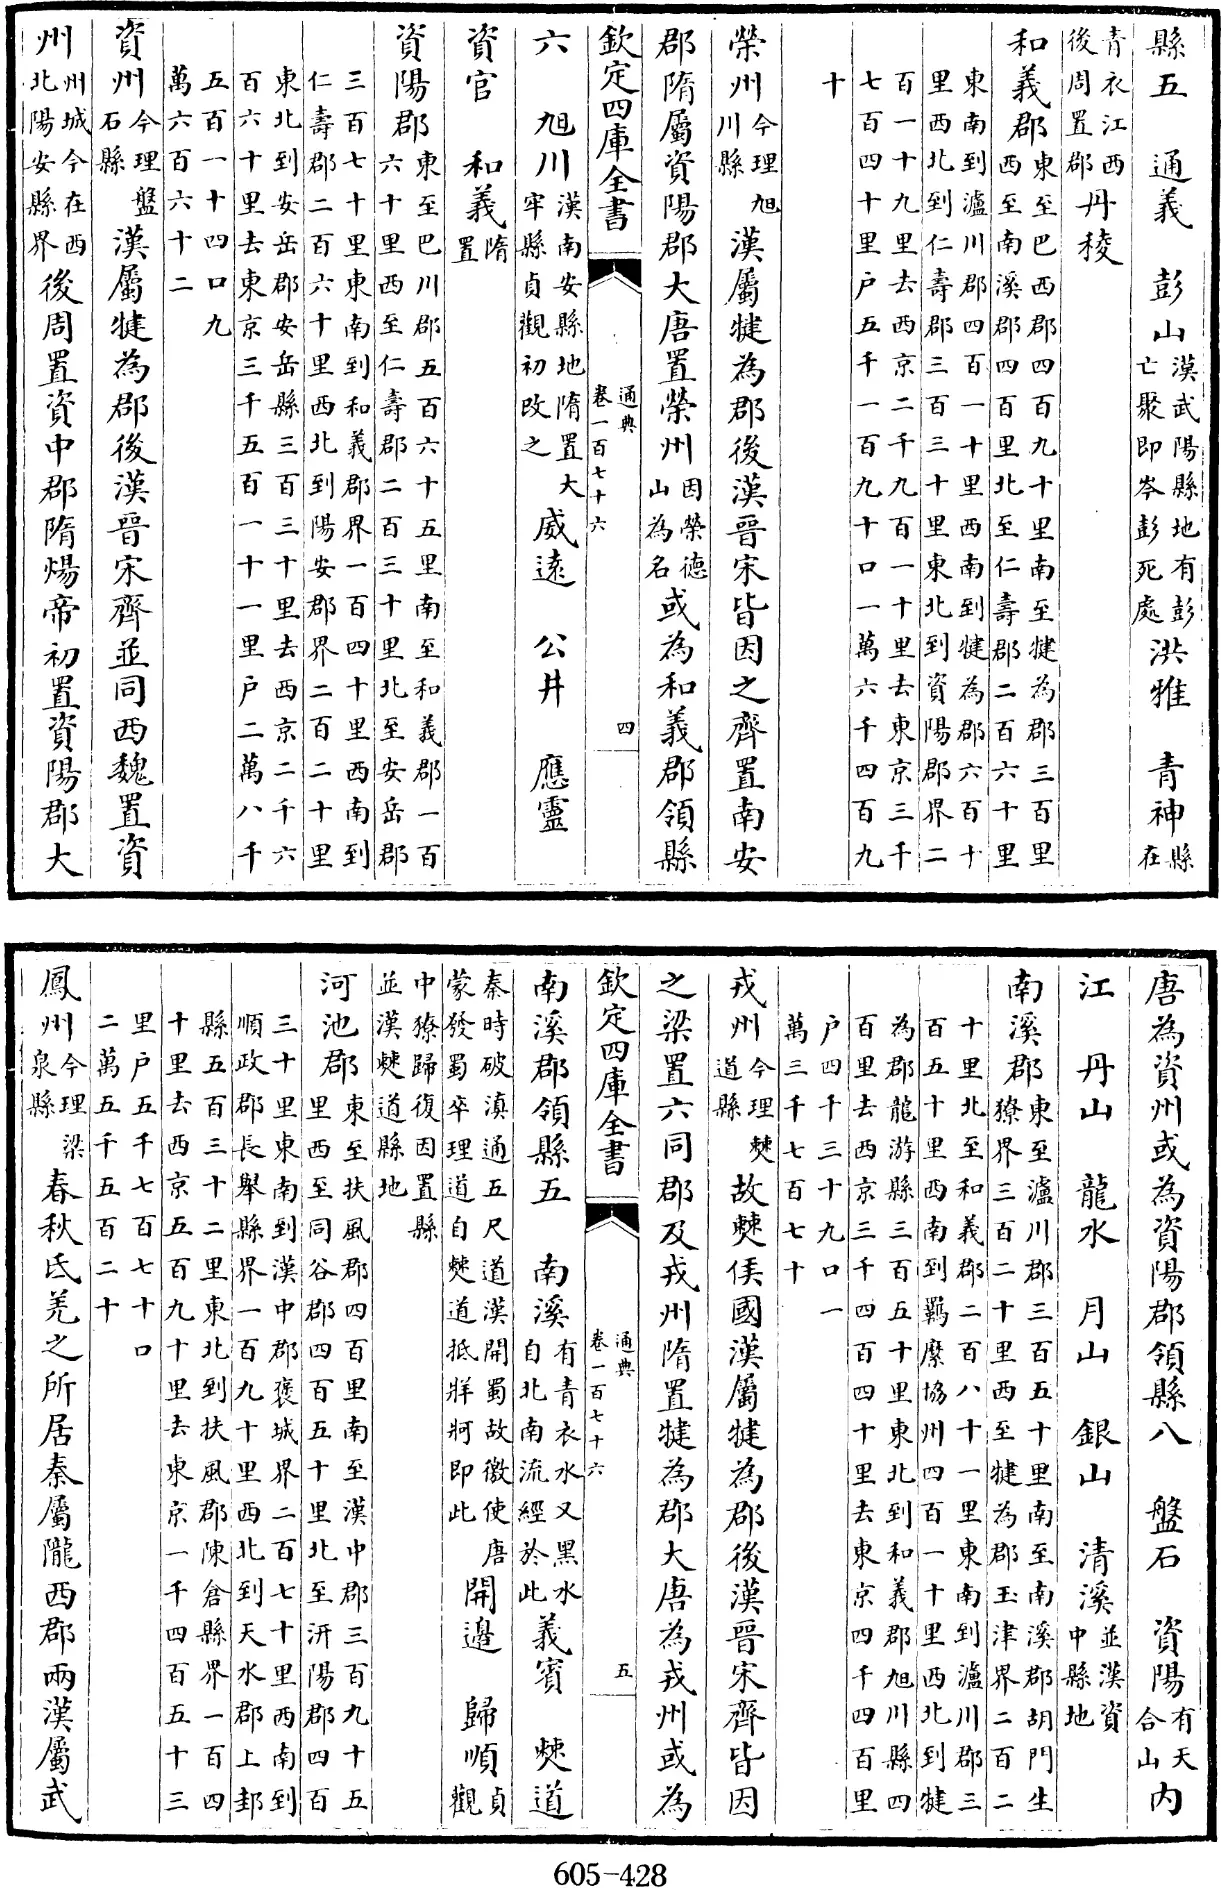 縣五　通義　彭山漢武陽縣地有彭亡聚即岑彭死處洪雅　青神縣在
青衣江西後周置郡丹稜
和義郡東至巴西郡四百九十里南至犍為郡三百里西至南溪郡四百里北至仁壽郡二百六十里
東南到瀘川郡四百一十里西南到犍為郡六百十里西北到仁壽郡三百三十里東北到資陽郡界二
百一十九里去西京二千九百一十里去東京三千七百四十里戶五千一百九十口一萬六千四百九
十
榮州今理旭川縣漢屬犍為郡後漢晉宋皆因之齊置南安
郡隋屬資陽郡大唐置榮州因榮德山為名或為和義郡領縣
欽定四庫全書　通典卷一百七十六　四
六　旭川漢南安縣地隋置大牢縣貞觀初改之威遠　公井　應靈
資官　和義隋置
資陽郡東至巴川郡五百六十五里南至和義郡一百六十里西至仁壽郡二百三十里北至安岳郡
三百七十里東南到和義郡界一百四十里西南到仁壽郡二百六十里西北到陽安郡界二百二十里
東北到安岳郡安岳縣三百三十里去西京二千六百六十里去東京三千五百一十一里戶二萬八千
五百一十四口九萬六百六十二
資州今理盤石縣漢屬犍為郡後漢晉宋齊並同西魏置資
州州城今在西北陽安縣界後周置資中郡隋煬帝初置資陽郡大
唐為資州或為資陽郡領縣八　盤石　資陽有天合山內
江　丹山　龍水　月山　銀山　清溪並漢資中縣地
南溪郡東至瀘川郡三百五十里南至南溪郡胡門生獠界三百二十里西至犍為郡玉津界二百二
十里北至和義郡二百八十一里東南到瀘川郡三百五十里西南到羈縻協州四百一十里西北到犍
為郡龍游縣三百五十里東北到和義郡旭川縣四百里去西京三千四百四十里去東京四千四百里
戶四千三十九口一萬三千七百七十
戎州今理僰道縣故僰侯國漢屬犍為郡後漢晉宋齊皆因
之梁置六同郡及戎州隋置犍為郡大唐為戎州或為
欽定四庫全書　通典卷一百七十六　五
南溪郡領縣五　南溪有青衣水又黑水自北南流經於此義賓　僰道
秦時破滇通五尺道漢開蜀故徼使唐蒙發蜀卒理道自僰道抵牂牁即此開邊　歸順貞觀
中獠歸復因置縣並漢僰道縣地
河池郡東至扶風郡四百里南至漢中郡三百九十五里西至同谷郡四百五十里北至汧陽郡四百
三十里東南到漢中郡褒城界二百七十里西南到順政郡長舉縣界一百九十里西北到天水郡上邽
縣五百三十二里東北到扶風郡陳倉縣界一百四十里去西京五百九十里去東京一千四百五十三
里戶五千七百七十口二萬五千五百二十
鳳州今理梁泉縣春秋氐羌之所居秦屬隴西郡兩漢屬武
605-428